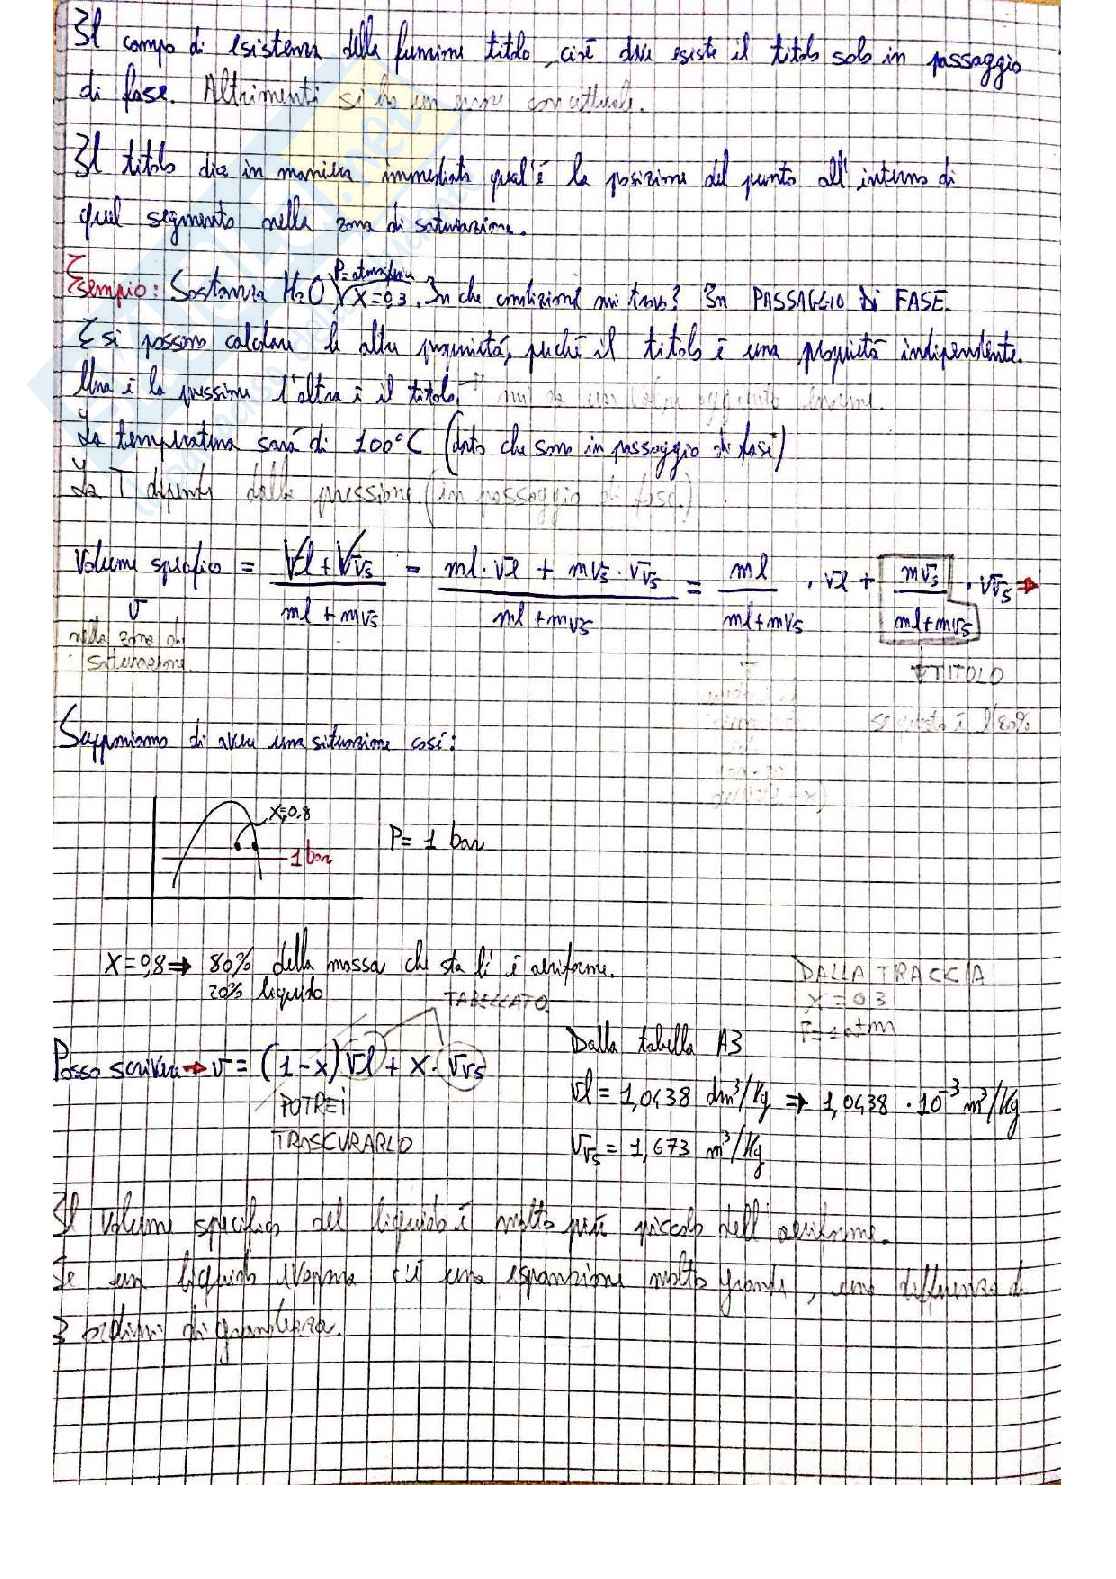 Il campo di esistenza della funzione titolo, cioè dove esiste il titolo solo in passaggio
di fase. Altrimenti si ha un errore concettuale.
Il titolo dice in maniera immediata qual'è la posizione del punto all'interno di
quel segmento nella zona di saturazione.
P=atmosfera
Esempio: Sostanza H₂O X=0,3. In che condizione mi trovo? In PASSAGGIO Di FASE.
E si possono calcolare le altre proprietà, perché il titolo è una proprietà indipendente.
Una è la pressione l'altra è il titolo.
La temperatura sarà di 100°C (dato che sono in passaggio di fase)
La T dipende dalla pressione (in passaggio di fase.)
Volume specifico = Vl + Vvs / ml + mvs = ml · vl + mvs · vvs / ml + mvs = ml / ml + mvs · vl + mvs / ml + mvs · vvs ⇒
v
nella zona di
saturazione
TITOLO
se questo è l'80%
Supponiamo di avere una situazione così:
X=0,8
P= 1 bar
1 bar
X=0,8 ⇒ 80% della massa che sta lì è aeriforme.
20% liquido
TABELLATO
DALLA TRACCIA
X = 0.3
P=1 atm
Posso scrivere ⇒ v = (1-x) vl + x · vvs
POTREI
TRASCURARLO
Dalla tabella A3
vl = 1,0438 dm³/Kg ⇒ 1,0438 · 10⁻³ m³/Kg
vvs = 1,673 m³/Kg
Il volume specifico del liquido è molto più piccolo dell'aeriforme.
Se un liquido evapora c'è una espansione molto grande, una differenza di
3 ordini di grandezza.